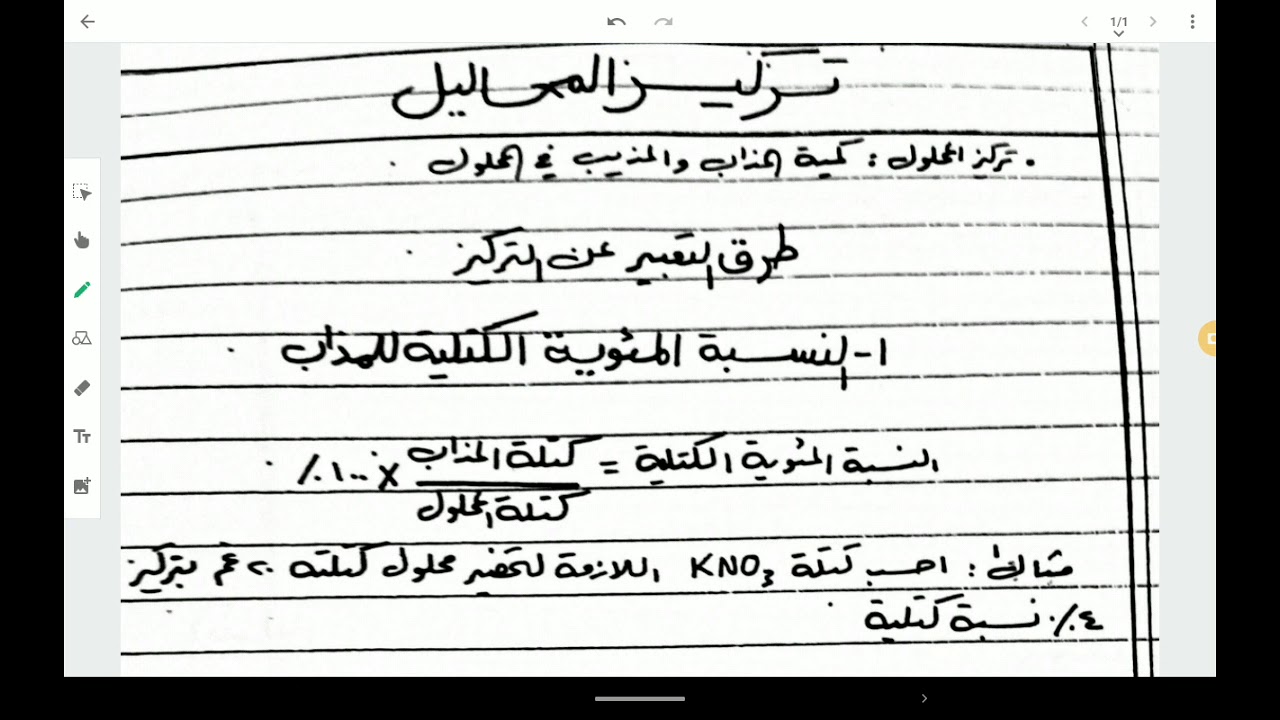 1/1
تركيز المحاليل
. تركيز المحلول : كمية المذاب والمذيب في المحلول .
طرق التعبير عن التركيز .
١- النسبة المئوية الكتلية للمذاب .
النسبة المئوية الكتلية = كتلة المذاب / كتلة المحلول × ١٠٠٪ .
مثال : احسب كتلة KNO₃ اللازمة لتحضير محلول كتلته ٢٠ غم بتركيز
٤٪ نسبة كتلية .
Tт